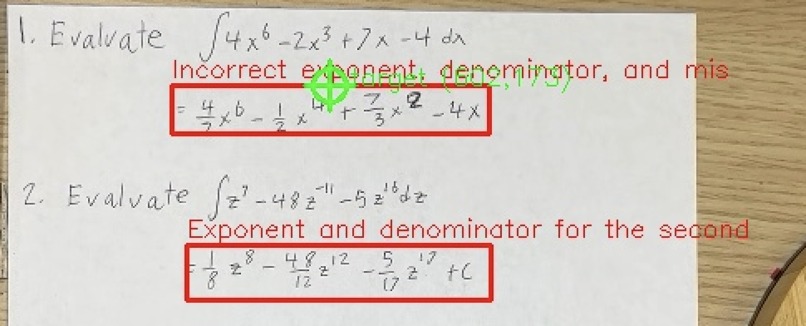 1. Evaluate ∫4x⁶-2x³+7x-4 dx
Incorrect exponent, denominator, and mis
target (602,173)
= 4/7 x⁶ - 1/2 x⁴ + 7/3 x² - 4x
2. Evaluate ∫z⁷-48z⁻¹¹-5z¹⁶dz
Exponent and denominator for the second
= 1/8 z⁸ - 48/12 z¹² - 5/17 z¹⁷ +C